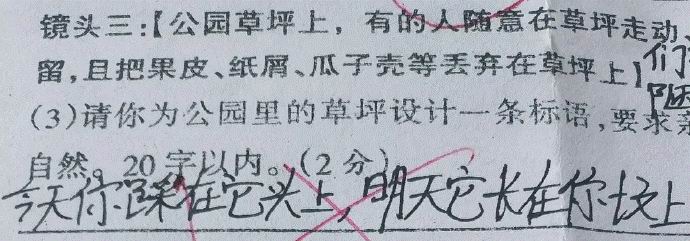 镜头三:【公园草坪上，有的人随意在草坪走动、
留,且把果皮、纸屑、瓜子壳等丢弃在草坪上】
们
(3)请你为公园里的草坪设计一条标语,要求亲
自然。20字以内。(2分)
今天你踩在它头上,明天它长在你坟上